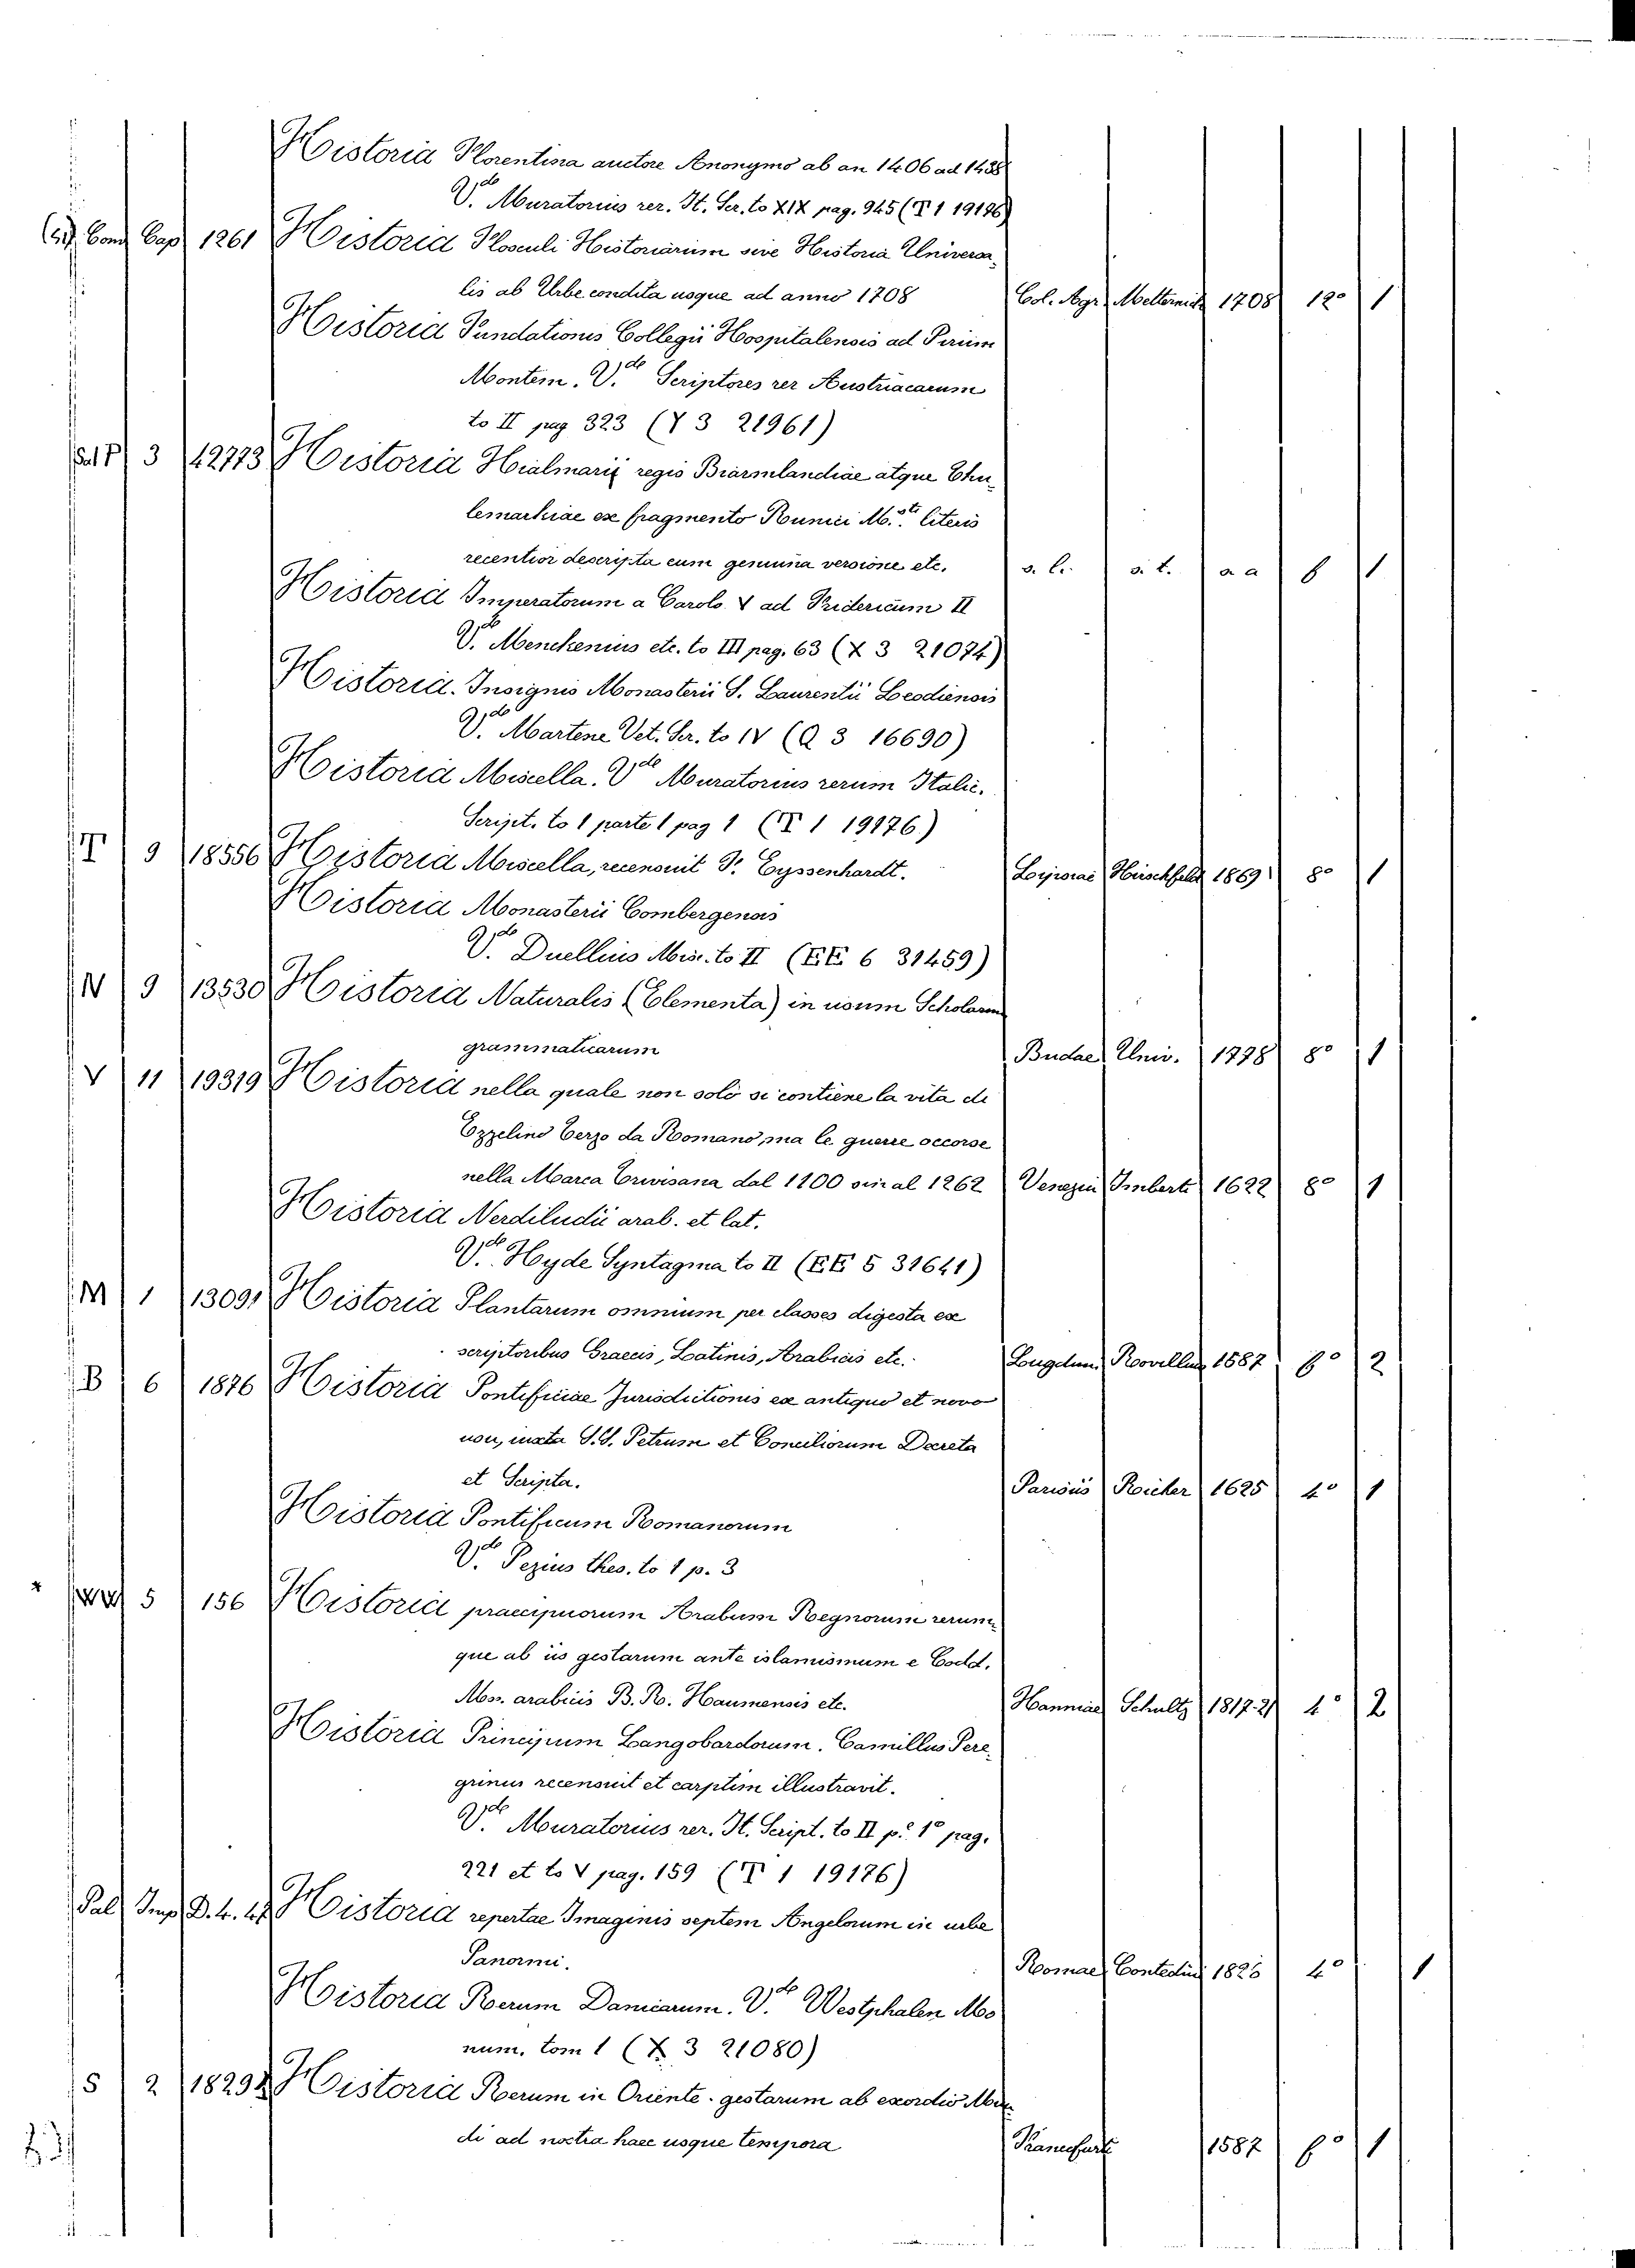 Historia Florentina auctore Anonymo ab an 1406 ad 1438
V.do Muratorius rer. It. Scr. to XIX pag. 945 (T 1 19176)
Cap 1261 Historia Flosculi Historiarum sive Historia Univers
lis ab Urbe condita usque ad anno 1708 Col. Agr. Metternich 1708 12° 1
Historia Fundationis Collegii Hospitalensis ad Pirum
Montem. V.de Scriptores rer Austriacarum
to II pag 323 (Y 3 21961)
3 12773 Historia Hialmari regis Biarmlandiae atque Thu
lemarkiae ex fragmento Runici M.sti literis
recentior descripta cum genuina versione etc. s. l. s. t. a a f 1
Historia Imperatorum a Carolo V ad Fridericum II
V.do Menckenius etc. to III pag. 63 (X 3 21074)
Historia. Insignis Monasterii S. Laurentii Leodiensis
V.do Martene Vet. Scr. to IV (Q 3 16690)
Historia Miscella. V.de Muratorius rerum Italic.
Script. to 1 parte 1 pag 1 (T 1 19176)
T 9 18556 Historia Miscella, recensuit F. Eyssenhardt. Lipsiae Hirschfeld 1869 8° 1
Historia Monasterii Combergensis
V.do Duellius Mis. to II (EE 6 31459)
N 9 13530 Historia Naturalis (Elementa) in usum Scholarum
grammaticarum Budae Univ. 1778 8° 1
V 11 19319 Historia nella quale non solo si contiene la vita di
Ezzelino Terzo da Romano, ma le guerre occorse
nella Marca Trivisana dal 1100 sin al 1262 Venezia Imberti 1622 8° 1
Historia Nerdiludii arab. et lat.
V.de Hyde Syntagma to II (EE 5 31641)
M 1 13091 Historia Plantarum omnium per classes digesta ex
scriptoribus Graecis, Latinis, Arabicis etc. Lugduni Rovillius 1587 f° 2
B 6 1876 Historia Pontificiae Jurisdictionis ex antiquo et novo
usu, iuxta S.S. Petrum et Conciliorum Decreta
et Scripta. Parisiis Richer 1625 4° 1
Historia Pontificum Romanorum
V.do Pezius thes. to 1 p. 3
5 156 Historia praecipuorum Arabum Regnorum rerum
que ab iis gestarum ante islamismum e Codd.
Mss. arabicis B. R. Haumensis etc. Hanniae Schultz 1817.21 4° 2
Historia Principum Langobardorum. Camillus Pere
grinus recensuit et carptim illustravit.
V.de Muratorius rer. It. Script. to II p.e 1° pag.
221 et to V pag. 159 (T 1 19176)
Pal Imp D. 4. 47 Historia repertae Imaginis septem Angelorum in urbe
Panormi. Romae Contedini 1826 4° 1
Historia Rerum Danicarum. V.de Westphalen Mo
num. tom 1 (X 3 21080)
S 2 18292 Historia Rerum in Oriente gestarum ab exordio Mun
di ad nostra haec usque tempora Francfurti 1587 f° 1